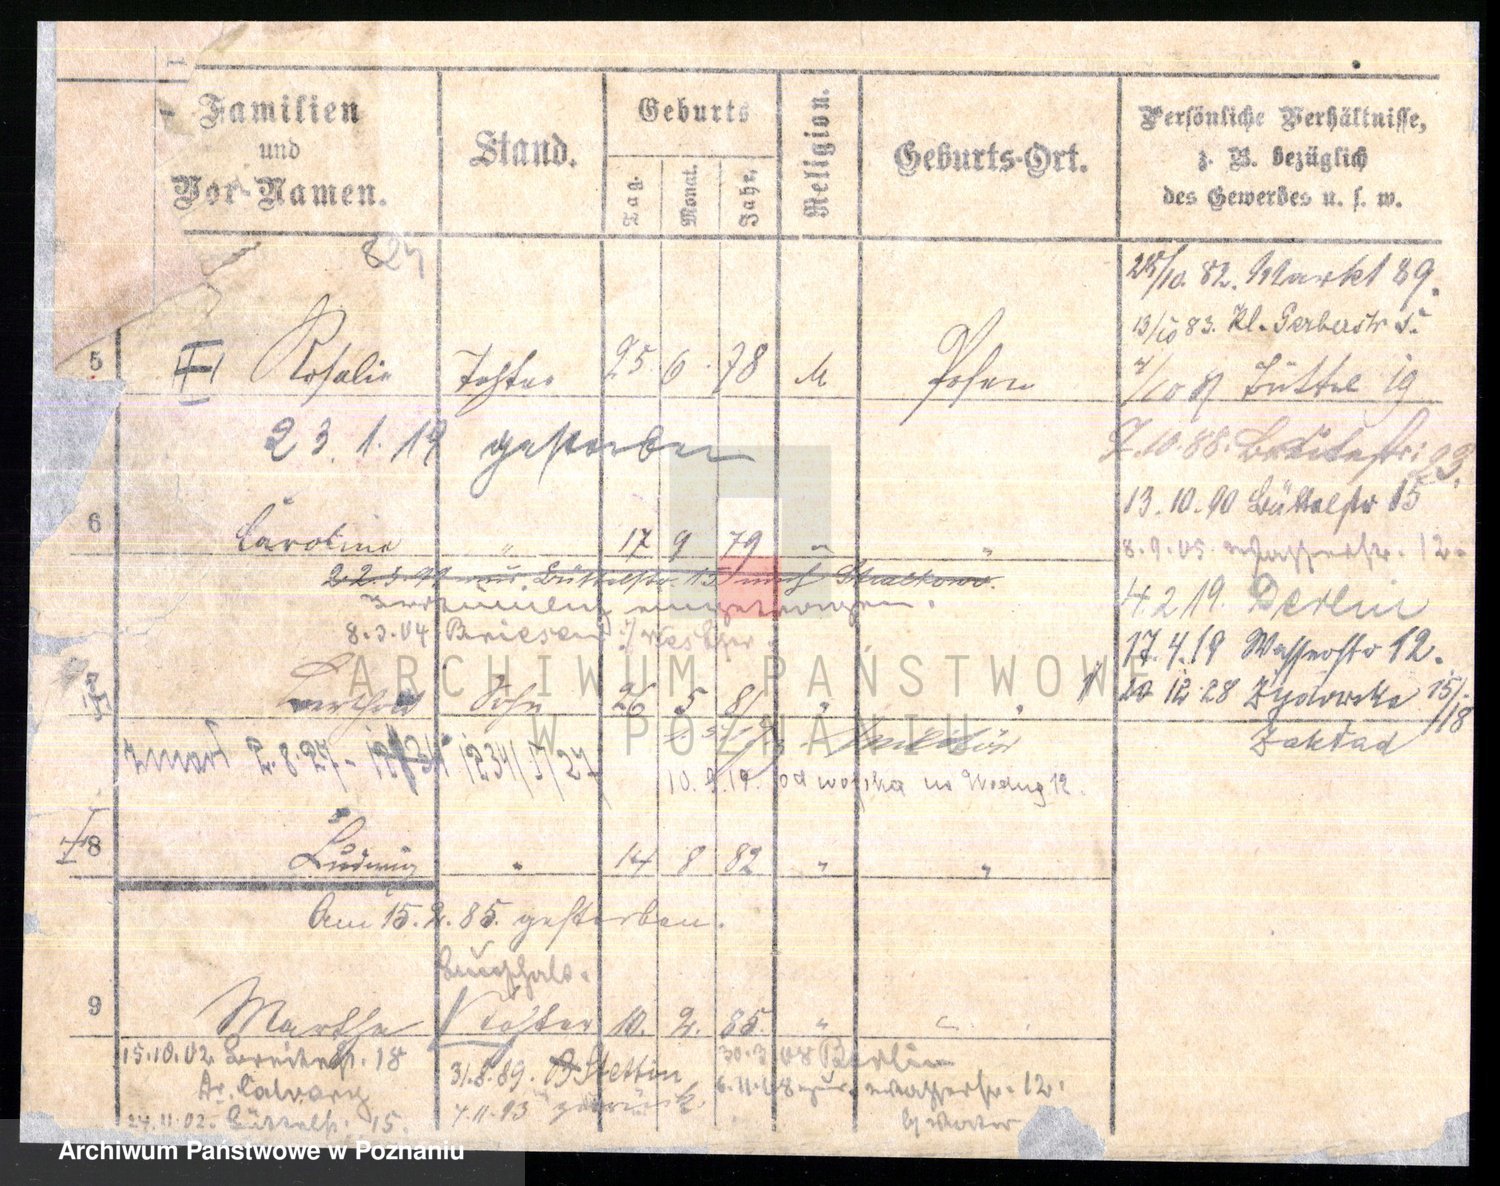 Familien
und
Vor-Namen.
Stand.
Geburts
Tag.
Monat.
Jahr.
Religion.
Geburts-Ort.
Persönliche Verhältnisse,
z. B. bezüglich
des Gewerbes u. s. w.
824
25/10. 82. Markt 89.
13/10 83. Kl. Gerberstr 5.
5 Rosalie Tochter 25. 6. 78 M Posen
Büttel 19
23. 1. 19 gestorben
7.10.88. Breitestr: 23.
13.10.90 Büttelstr 15
6 Caroline " 17 9 79 " "
8.9.05. Wasserstr. 12.
22.3.99 aus Büttelstr. 15 nach Stralkowo.
irrtümlich eingetragen.
4.2.19. Berlin
8.3.04 Briesen i/Westpr.
17.4.19 Wasserstr 12.
7 Berthold Sohn 26 5 81 " "
12.28 Żydowska 15/18
Zakład
zmarł 2.8.27 - 1234/I/27
Militär
10.9.19. od wojska na Wodną 12.
8 Ludwig " 14 8 82 " "
Am 15.2.85. gestorben.
Buchhalt.
9 Martha Tochter 10. 2. 85. " "
15.10.02 Breitestr. 18
31.8.89. Stettin
Berlin
6.11.08 zur. Wasserstr. 12.
b/ Mutter
24.11.02. Büttelstr. 15.
7.11.93 zurück.
ARCHIWUM PAŃSTWOWE
W POZNANIU
Archiwum Państwowe w Poznaniu